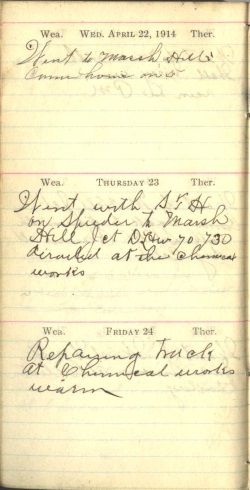 Wea. WED. APRIL 22, 1914 Ther.
Went to Marsh Hill
Came home on 5
Wea. THURSDAY 23 Ther.
Went with S F H
on Speeder to Marsh
Hill Jct D H no 70 730
derailed at the chemical
works
Wea. FRIDAY 24 Ther.
Repairing track
at Chemical works
warm